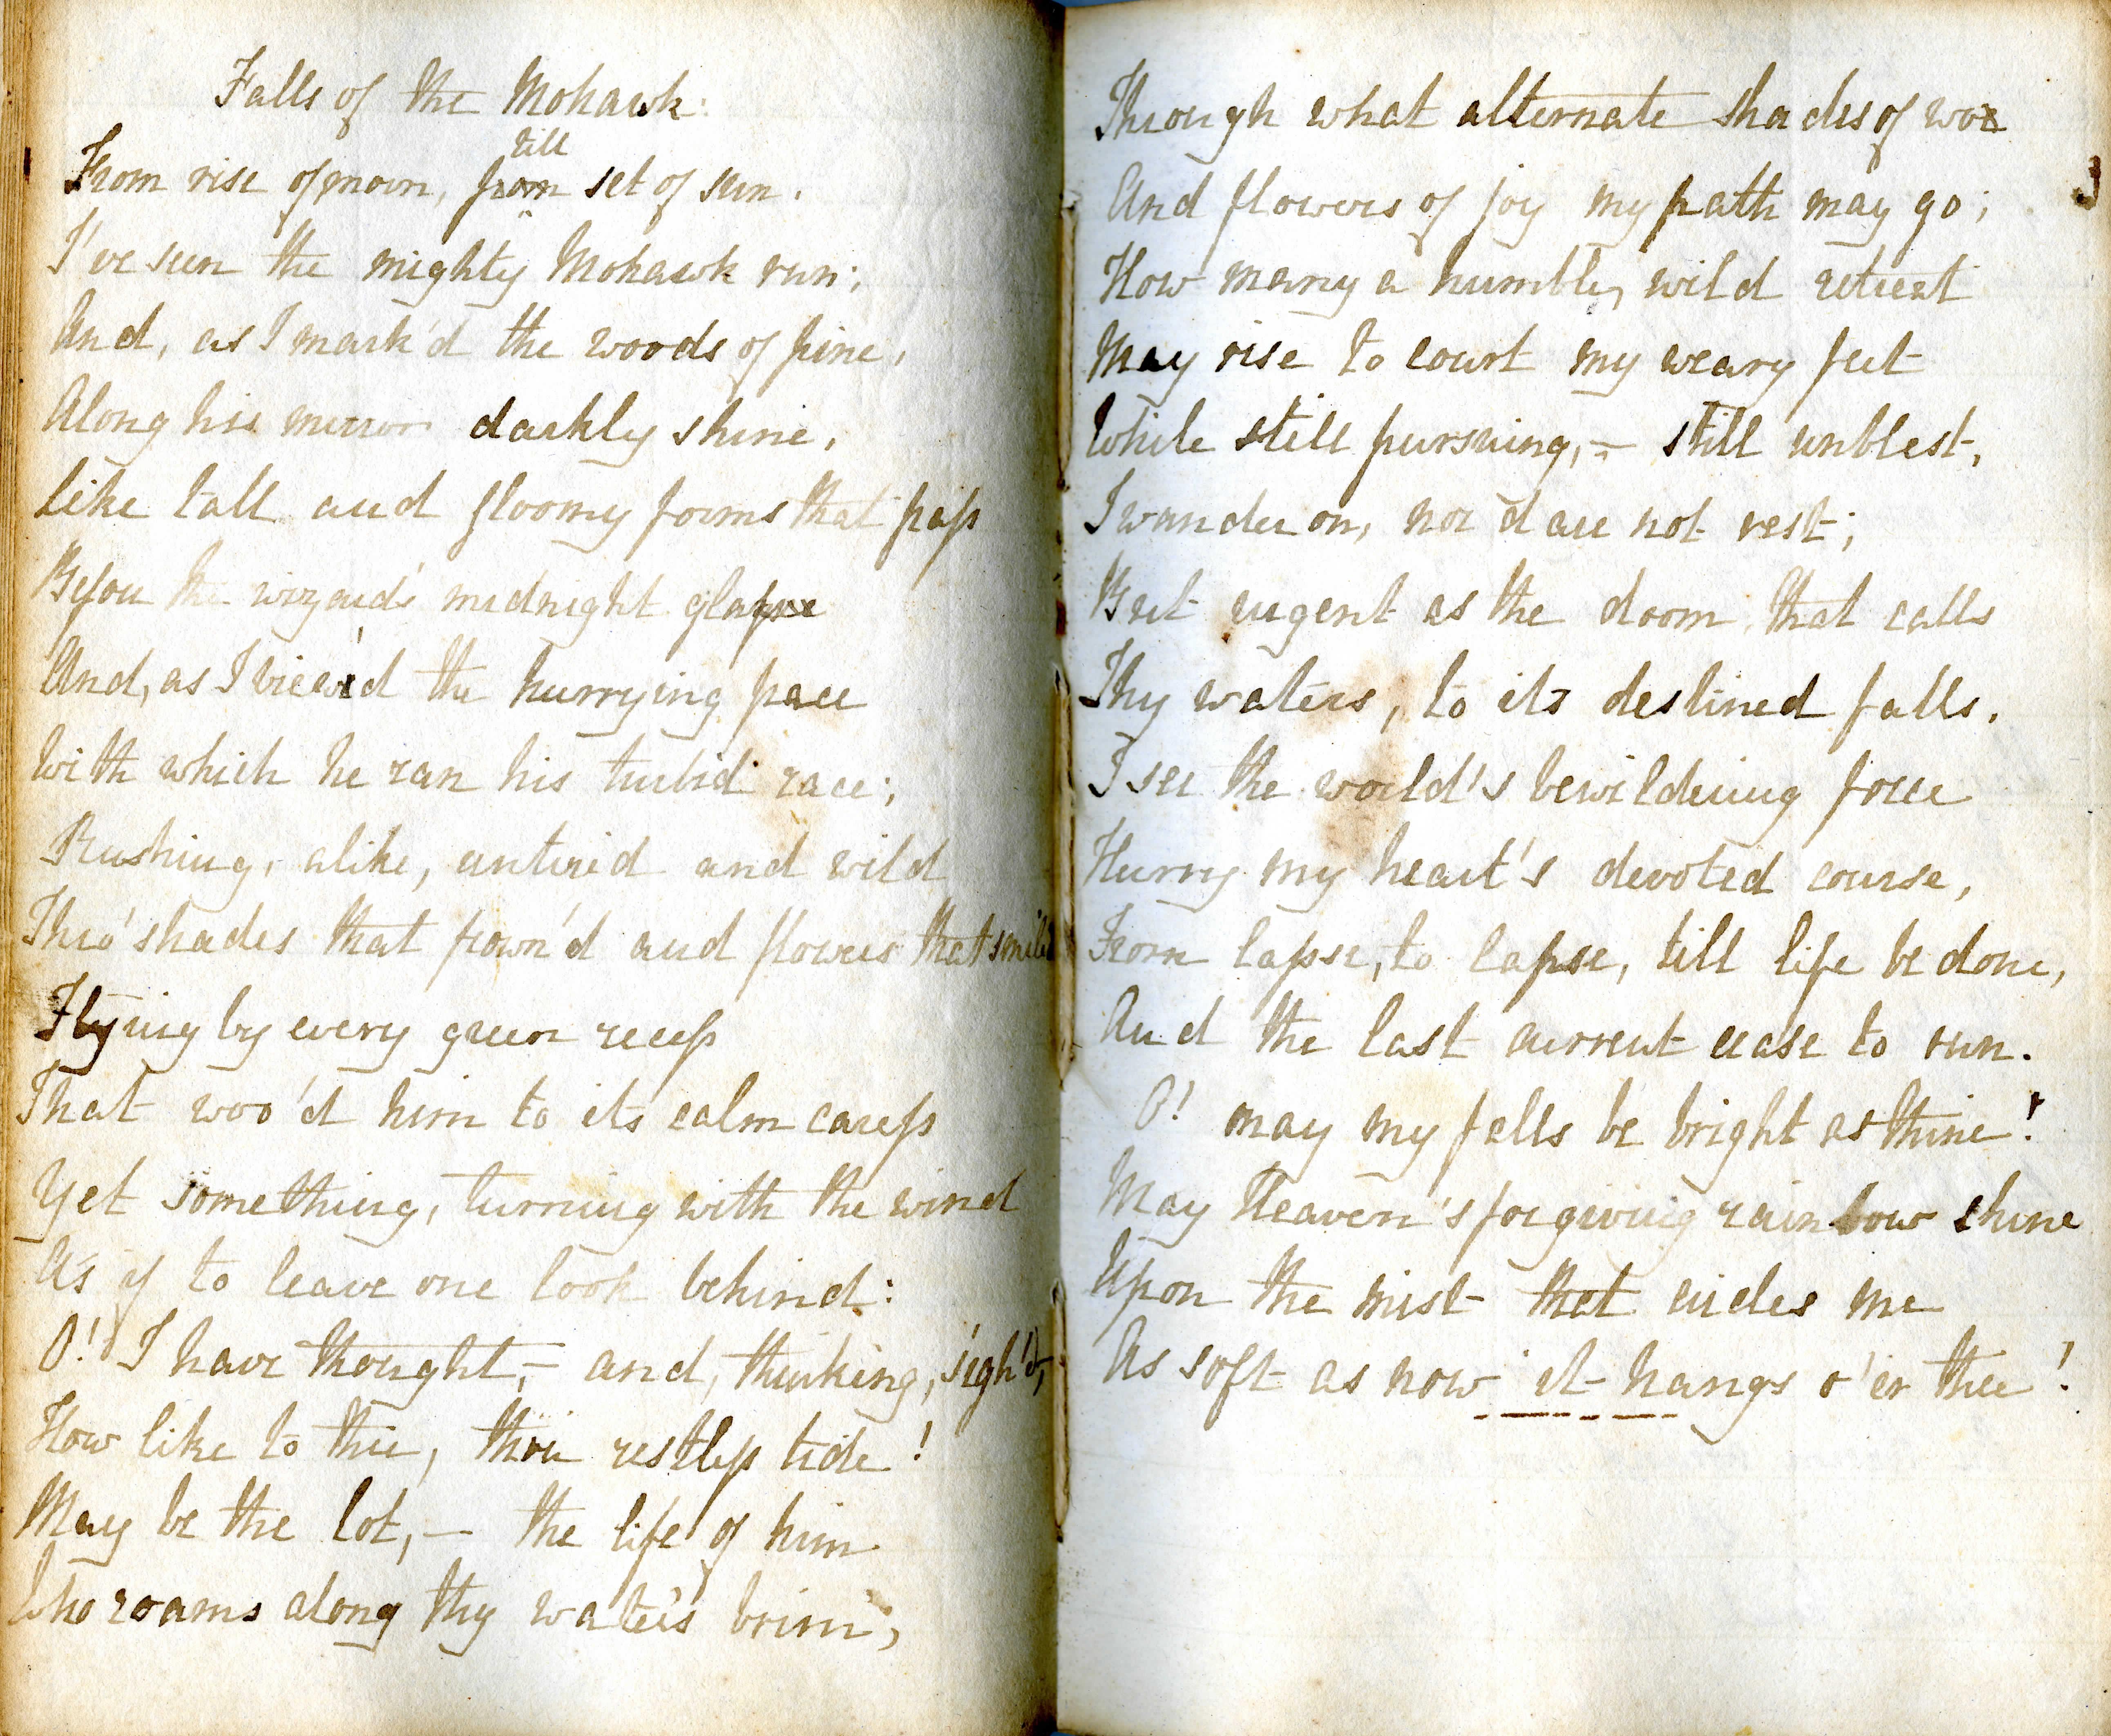 Falls of the Mohawk:
till
From rise of morn, from set of sun,
I've seen the mighty Mohawk run;
And, as I mark'd the woods of pine,
Along his mirror darkly shine,
Like tall and gloomy forms that paſs
Before the wizard's midnight glaſse
And, as I view'd the hurrying pace
With which he ran his turbid race;
Rushing, alike, untired and wild
Thro' shades that frown'd and flowers that smil'd
Flying by every green receſs
That woo'd him to its calm careſs
Yet something, turning with the wind
As if to leave one look behind:
O! I have thought, – and, thinking, sigh'd,
How like to thee, thou restleſs tide!
May be the lot, – the life of him
Who roams along thy water's brim;
Through what alternate shades of woe
And flowers of joy my path may go;
How many a humble, wild retreat
May rise to court my weary feet
While still pursuing, – still unblest,
I wander on, nor dare not rest;
But urgent as the doom that calls
Thy waters, to its destined falls,
I see the world's bewildering force
Hurry my heart's devoted course,
From lapse, to lapse, till life be done,
And the last current cease to run.
O! may my falls be bright as thine!
May Heaven's forgiving rainbow shine
Upon the mist that circles me
As soft as now it hangs o'er thee!